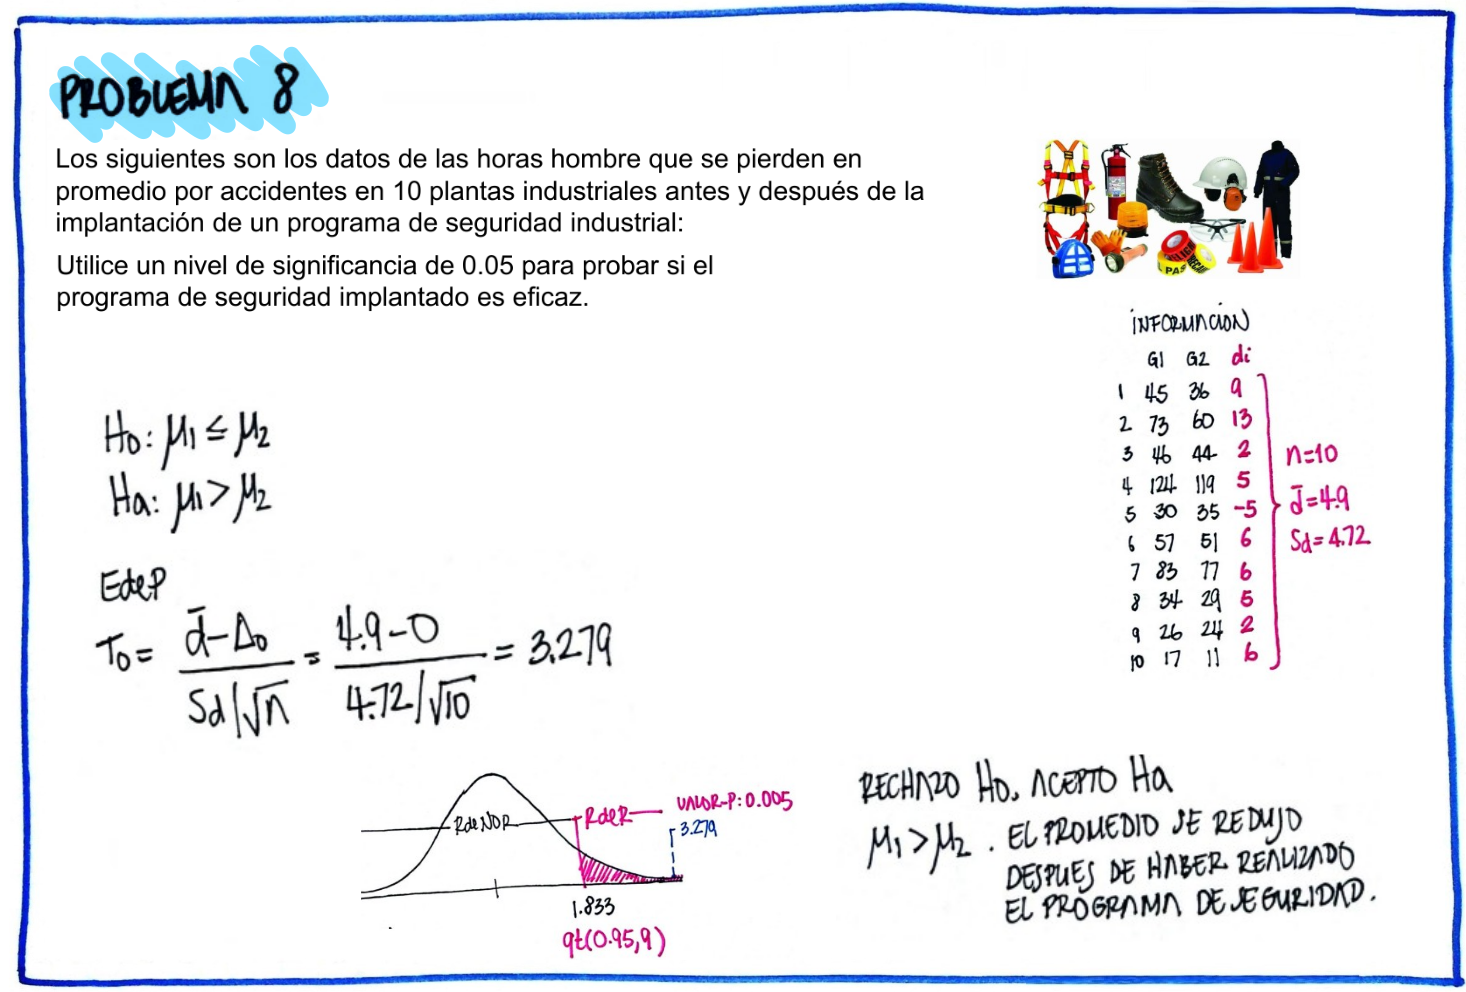 PROBLEMA 8
Los siguientes son los datos de las horas hombre que se pierden en
promedio por accidentes en 10 plantas industriales antes y después de la
implantación de un programa de seguridad industrial:
Utilice un nivel de significancia de 0.05 para probar si el
programa de seguridad implantado es eficaz.
INFORMACIÓN
G1 G2 di
1 45 36 9
2 73 60 13
3 46 44 2
4 124 119 5
5 30 35 -5
6 57 51 6
7 83 77 6
8 34 29 5
9 26 24 2
10 17 11 6
n=10
d̄=4.9
Sd=4.72
Ho: μ1 ≤ μ2
Ha: μ1 > μ2
EdeP
To = d̄-Δo / Sd/√n = 4.9-0 / 4.72/√10 = 3.279
RdeNOR
RdeR
VALOR-P: 0.005
3.279
1.833
qt(0.95,9)
RECHAZO Ho, ACEPTO Ha
μ1 > μ2. EL PROMEDIO SE REDUJO
DESPUES DE HABER REALIZADO
EL PROGRAMA DE SEGURIDAD.